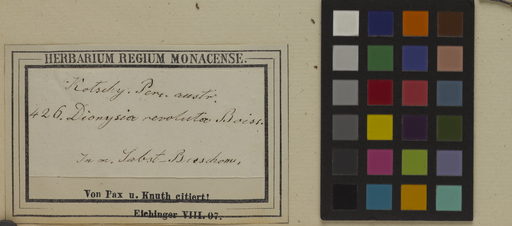 HERBARIUM REGIUM MONACENSE.
Kotschy. Pers. austr.
426. Dionysia revoluta Boiss.
In m.
Von Pax u. Knuth citiert!
Eichinger VIII. 07.